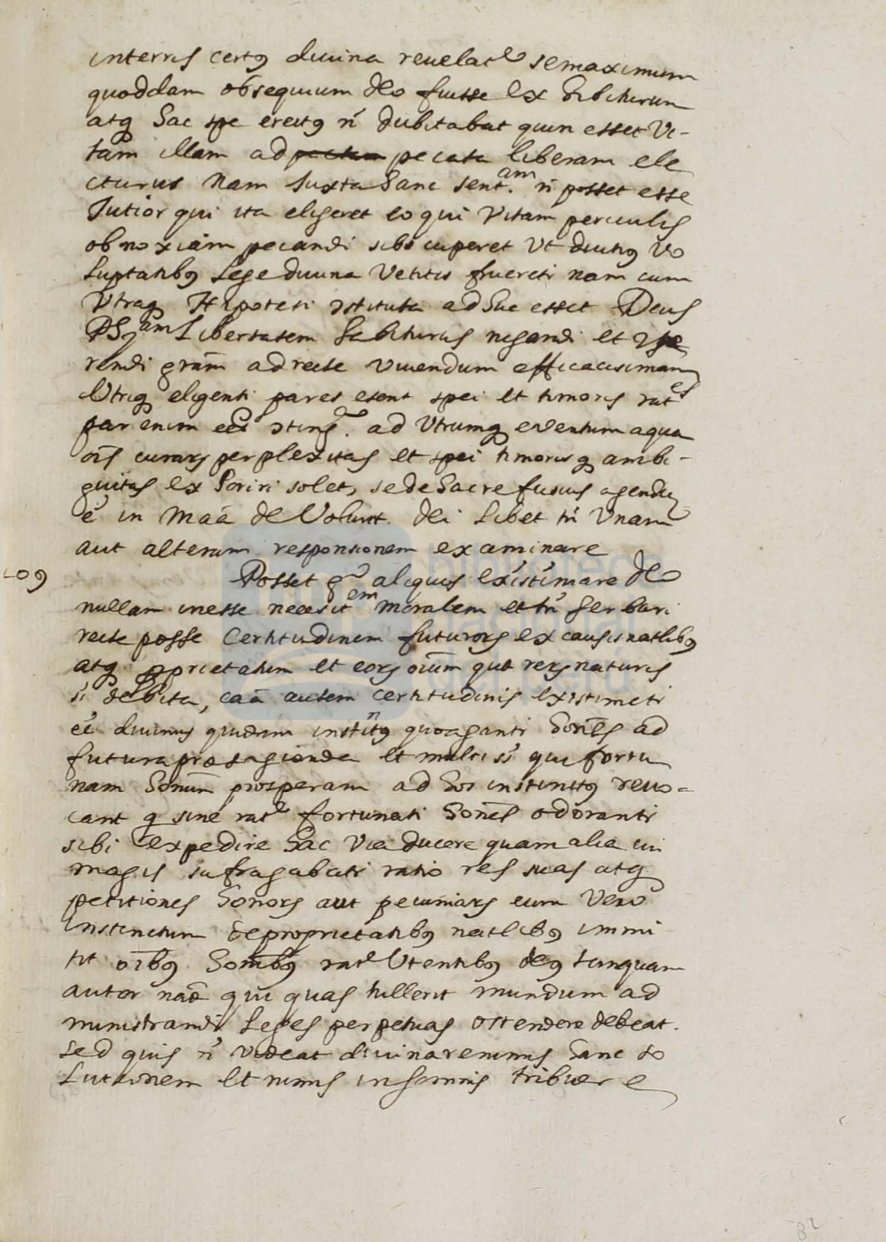 interris certq divina revelatē se maximum
quoddam obsequium deo fuisse ex
atq hac spe erectq n̄ dubitabat quin esset vi-
tam illam ad pecata liberam ele
cturus nam Juxta hanc sent.am n̄ posset esse
Tutior qui ita eligeret eo qui vitam periculis
obnoxiam pecandi sibi cuperet ut diutiq vo
luptatibq lege divina vetitis frueret nam cum
utraq Hipotesi adhuc esset Deus
Libertatem habiturus negandi et
rendi grām ad recte vivendum efficacisimam
utriq eligenti pares esent spei et timoris rat.es
par enim ad utrumq eventum a qua
oīs perplexitas et spei timorisq ambi-
guitas ex oriri solet, sed de hac re fusius agendū
ē in māa de Volunt. dei libet tn̄ unam
aut alteram responsionem examinare
109 Posset gº aliquis existimare de
nullam inesse necesit.em moralem et tn̄ ser bari
recte posse Certitudinem futurors ex causis natlibq
atq proprietatum et eors oīum que rers naturis
s̄t debita, caā autem certitudinis existimeti
divinus quidam instin̄tq quo aganti hōnēs ad
futura presagienda et multi s̄t qui fortu
nam honūm prosperam ad hos instinctq revo-
cant q sine ratē fortunati honēs odoranti
sibi expedire hac via ducere quam alia ui
magis sufragabati ratio res suas atq
petitiones honors aut pecuniars eum vero
instinctum de proprietatibq natlibq immi
tit oībq homībq ratē utentibq deq tanquam
autor naē qui quas tullerit mundum ad
ministrandi leges perpetuas ostendere debeat.
sed quis n̄ videat divinare nimis hanc so
lutionem et nimis insomnis tribuere